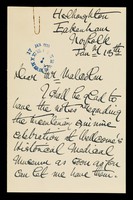 Helhoughton
Fakenham
Norfolk
Jan 13th
Dear Mr Malcolm
I shall be glad to
have the notes regarding
the
quinine
exhibition at Wellcome's
Historical Medical
Museum as soon as you
can let me have them.